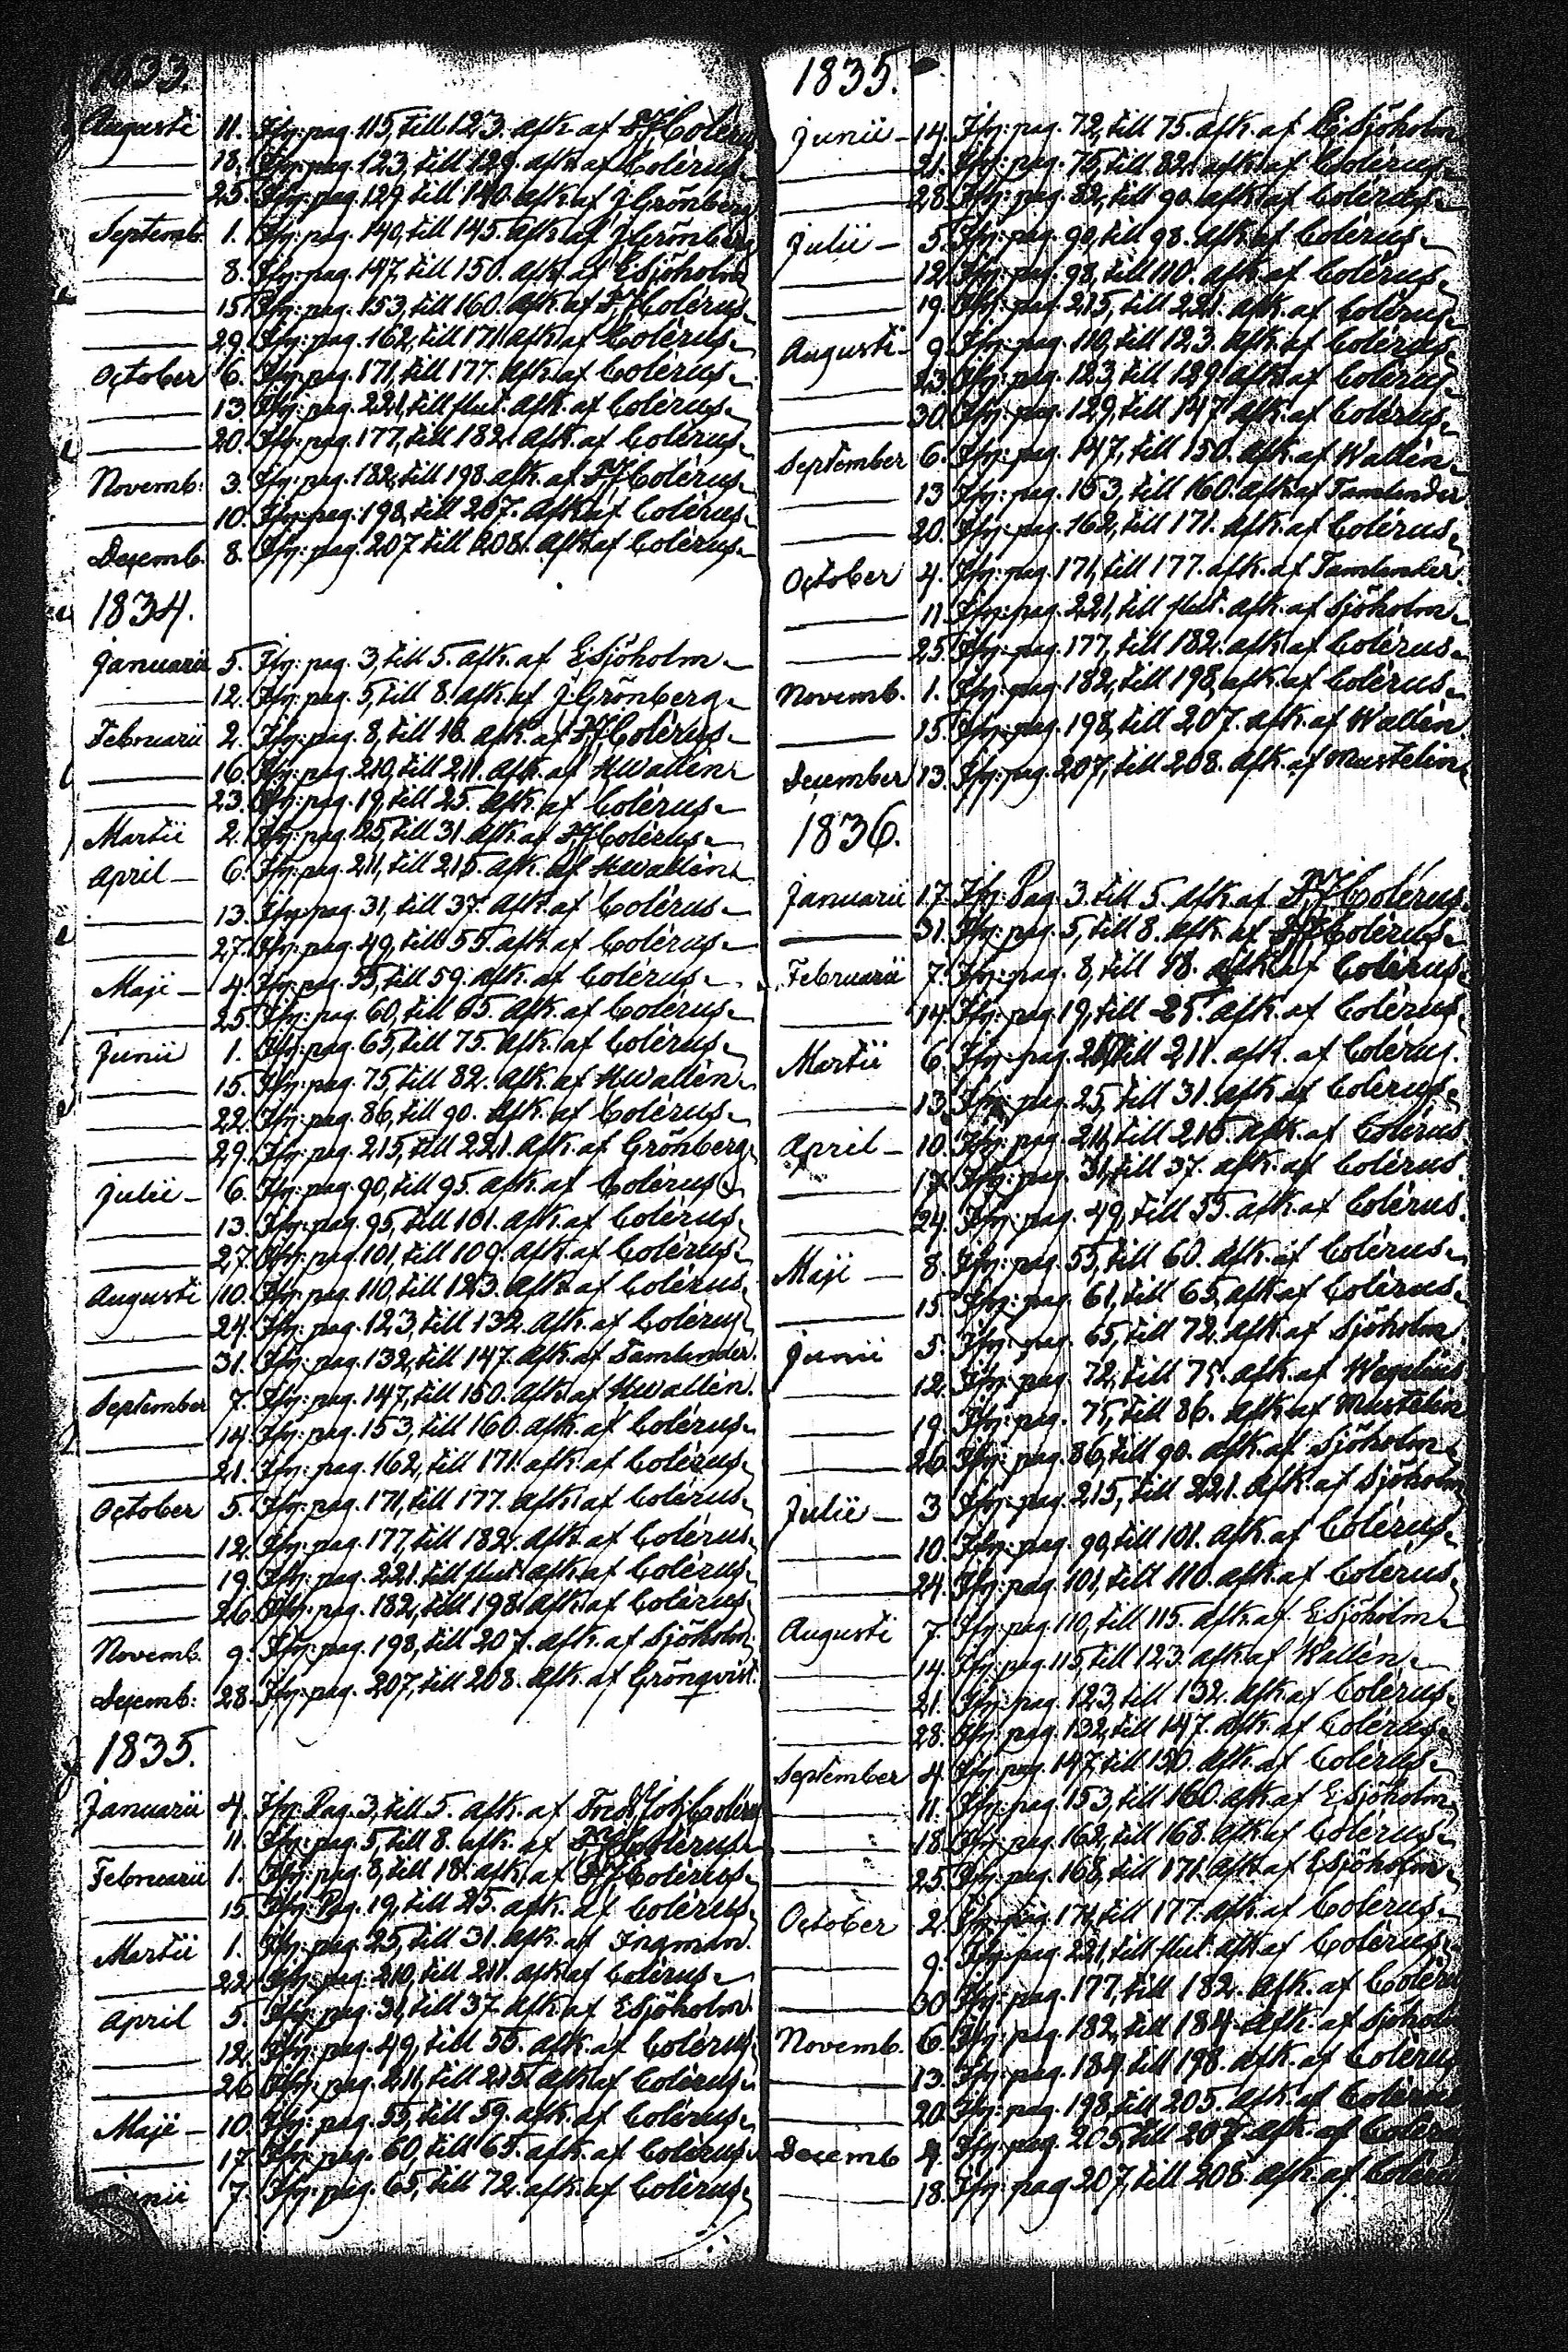 1833.
Augusti 11. Ifrn: pag. 115, till 123. afk. af F J Colérus
18. Ifrn: pag. 123, till 129. afk. af Colérus
25. Ifrn: pag. 129 till 140. afk. af J Grönberg
Septemb. 1. Ifrn: pag. 140, till 145. afk. af J Grönberg
8. Ifrn: pag. 147, till 150. afk. af E Sjöholm
15 Ifrn: pag. 153, till 160. afk. af F J Colérus
29. Ifrn: pag. 162, till 171 afk. af Colérus
October 6. Ifrn: pag. 171, till 177. afk. af Colérus
13 Ifrn: pag. 221, till slut. afk. af Colérus
20. Ifrn: pag. 177, till 182. afk. af Colérus
Novemb: 3. Ifrn: pag. 182, till 198. afk. af F J Colérus
10. Ifrn: pag. 198, till 207. afk. af Colérus
Decemb. 8. Ifrn: pag. 207 till 208. afk. af Colérus
1834.
Januarii 5. Ifrn: pag. 3, till 5. afk. af E Sjöholm
12. Ifrn: pag. 5, till 8. afk. af J Grönberg
Februarii 2. Ifrn: pag. 8, till 18. afk. af F J Colérus
16. Ifrn: pag. 210, till 211. afk. af H Wallén
23. Ifrn: pag. 19, till 25. afk. af Colérus
Martii 2. Ifrn: pag. 25, till 31. afk. af F J Colérus
April 6. Ifrn: pag. 211, till 215. afk. af H Wallén
13. Ifrn: pag. 31, till 37. afk. af Colérus
27. Ifrn: pag. 49, till 55. afk. af Colérus
Maji 4. Ifrn: pag. 55, till 59. afk. af Colérus
25. Ifrn: pag. 60, till 65. afk. af Colérus
Junii 1. Ifrn: pag. 65, till 75. afk. af Colérus
15. Ifrn: pag. 75, till 82. afk. af H Wallén
22. Ifrn: pag. 86, till 90. afk. af Colérus
29. Ifrn: pag. 215, till 221. afk. af Grönberg
Julii 6. Ifrn: pag. 90, till 95. afk. af Colérus
13. Ifrn: pag. 95, till 101. afk. af Colérus
27. Ifrn: pag. 101, till 109. afk. af Colérus
Augusti 10. Ifrn: pag. 110, till 123. afk. af Colérus
24. Ifrn: pag. 123, till 132. afk. af Colérus
31. Ifrn: pag. 132, till 147. afk. af Tamlander.
September 7. Ifrn: pag. 147, till 150. afk. af H Wallén.
14. Ifrn: pag. 153, till 160. afk. af Colérus
21. Ifrn: pag. 162, till 171. afk. af Colérus
October 5. Ifrn: pag. 171, till 177. afk. af Colérus
12. Ifrn: pag. 177, till 182. afk. af Colérus
19. Ifrn: pag. 221. till slut. afk. af Colérus
26. Ifrn: pag. 182, till 198. afk. af Colérus
Novemb. 9. Ifrn: pag. 198, till 207. afk. af Sjöholm
Decemb: 28. Ifrn: pag. 207, till 208. afk. af Grönqvist.
1835.
Januarii 4. Ifrn: Pag. 3, till 5. afk. af Fredr Joh: Colérus
11. Ifrn: pag. 5, till 8. afk. af F J Colérus
Februarii 1. Ifrn: pag. 8, till 18. afk. af F J Colérus
15. Ifrn: Pag. 19, till 25. afk. af Colérus
Martii 1. Ifrn: pag. 25, till 31. afk. af Ingman.
22. Ifrn: pag. 210, till 211. afk. af Colérus
April 5. Ifrn: pag. 31, till 37. afk. af E Sjöholm
12. Ifrn: pag. 49, till 55. afk. af Colérus
26 Ifrn: pag. 211, till 215. afk. af Colérus
Maji 10. Ifrn: pag. 55, till 59. afk. af Colérus
17 Ifrn: pag. 60, till 65. afk. af Colérus
Junii 7. Ifrn: pag. 65, till 72. afk. af Colérus
1835.
Junii 14. Ifrn: pag. 72, till 75. afk. af E Sjöholm
21. Ifrn: pag. 75, till 82. afk. af Colérus
28. Ifrn: pag. 82, till 90. afk. af Colérus
Julii 5. Ifrn: pag. 90, till 98. afk. af Colérus
12. Ifrn: pag. 98, till 110. afk. af Colérus
19. Ifrn: pag. 215, till 221. afk. af Colérus
Augusti 9. Ifrn: pag. 110, till 123. afk. af Colérus
23. Ifrn: pag. 123, till 129. afk. af Colérus
30. Ifrn: pag. 129, till 147 afk. af Colérus
September 6. Ifrn: pag. 147, till 150. afk. af Wallén
13 Ifrn: pag. 153, till 160. afk. af Tamlander
20. Ifrn: pag. 162, till 171. afk. af Colérus
October 4. Ifrn: pag. 171, till 177. afk. af Tamlander.
11 Ifrn: pag. 221, till slut. afk. af Sjöholm
25. Ifrn: pag. 177, till 182. afk. af Colérus
Novemb. 1. Ifrn: pag. 182, till 198, afk. af Colérus
15. Ifrn: pag. 198, till 207. afk. af Wallén
December 13. Ifrn: pag. 207, till 208. afk. af Mustelin
1836.
Januarii 17. Ifrn: Pag. 3. till 5. afk. af F J Colérus
31. Ifrn: pag. 5, till 8. afk. af F J Colérus
Februarii 7. Ifrn: pag. 8, till 18. afk. af Colérus
14. Ifrn: pag. 19, till 25. afk. af Colérus
Martii 6. Ifrn: pag. till 211. afk. af Colérus.
13. Ifrn: pag. 25, till 31. afk. af Colérus
April 10. Ifrn: pag. 211, till 215. afk. af Colérus
17 Ifrn: pag. 31, till 37. afk. af Colérus.
24. Ifrn: pag. 49, till 55. afk. af Colérus.
Maji 8. Ifrn: pag. 55, till 60. afk. af Colérus
15. Ifrn: pag. 61, till 65, afk. af Colérus
Junii 5. Ifrn: pag. 65, till 72. afk. af Sjöholm
12. Ifrn: pag. 72, till 75. afk. af Wegelius
19. Ifrn: pag. 75, till 86. afk. af Mustelin
26. Ifrn: pag. 86, till 90. afk. af Sjöholm
Julii 3 Ifrn: pag. 215, till 221. afk. af Sjöholm
10. Ifrn: pag. 90, till 101. afk. af Colérus
24. Ifrn: pag. 101, till 110. afk. af Colérus
Augusti 7. Ifrn: pag. 110, till 115. afk. af E Sjöholm
14. Ifrn: pag. 115, till 123. afk. af Wallén
21. Ifrn: pag. 123, till 132. afk. af Colérus
28. Ifrn: pag. 132, till 147. afk. af Colérus
September 4. Ifrn: pag. 147, till 150. afk. af Colérus
11. Ifrn: pag. 153, till 160. afk. af E Sjöholm
18. Ifrn: pag. 162, till 168. afk. af Colérus
25. Ifrn: pag. 168, till 171. afk. af E Sjöholm
October 2. Ifrn: pag. 171, till 177. afk. af Colérus
9. Ifrn: pag. 221, till slut. afk. af Colérus
30 Ifrn: pag. 177, till 182. afk. af Coléru
Novemb. 6. Ifrn: pag. 182, till 184. afk. af Sjöholm
13. Ifrn: pag. 184 till 198. afk. af Colérus
20. Ifrn: pag. 198, till 205. afk. af Colérus
Decemb 4. Ifrn: pag. 205, till 207. afk. af Coléru
18. Ifrn: pag. 207, till 208. afk. af Coléru